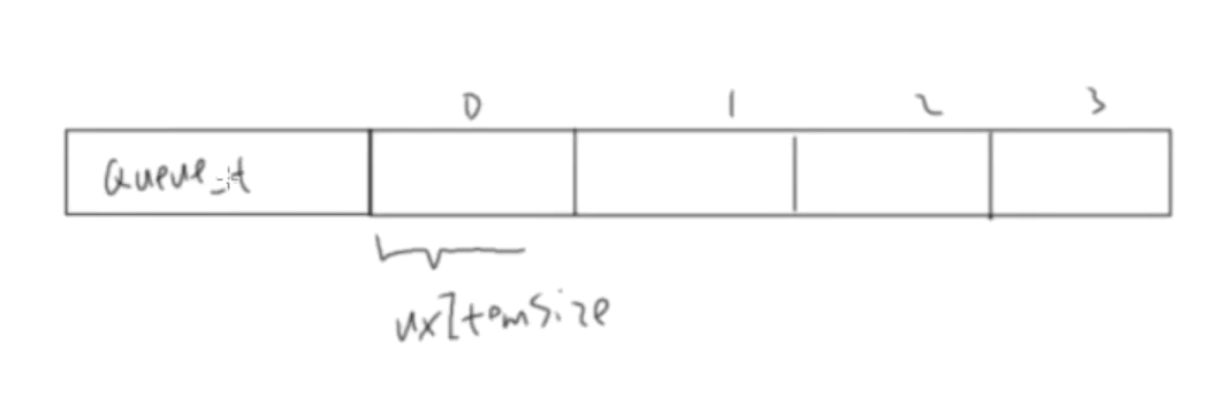 0 1 2 3
Queue_t
uxItemSize